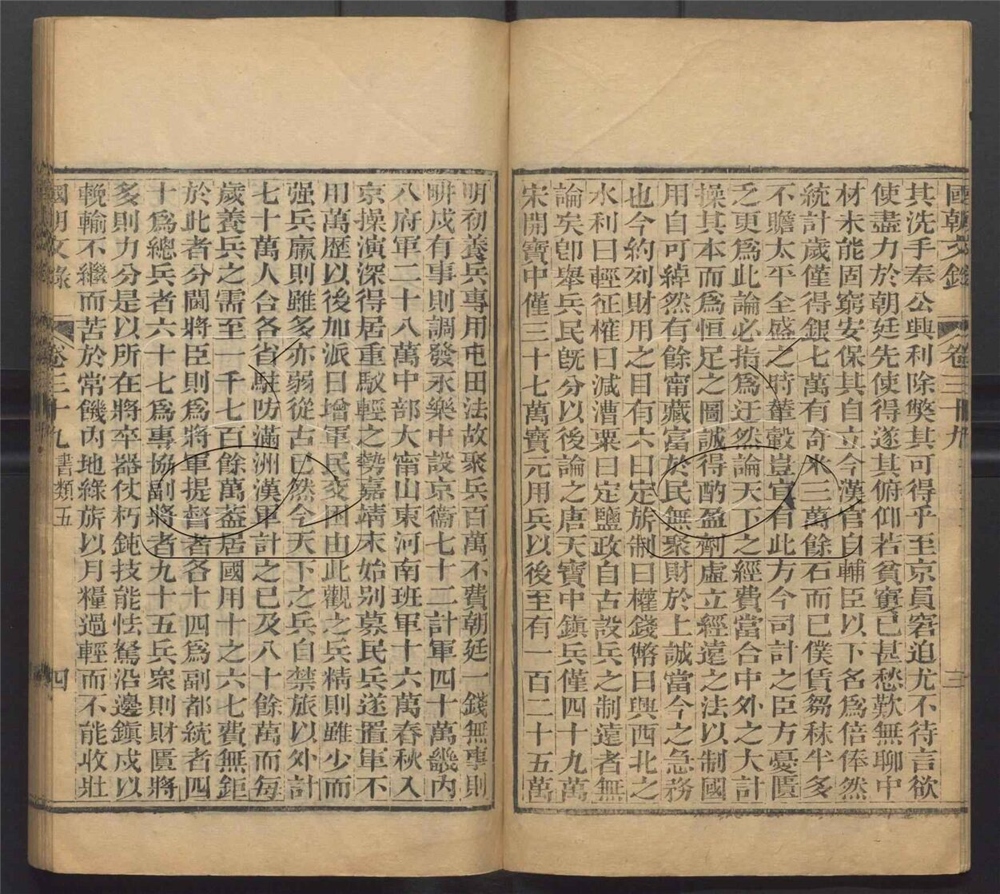 國朝文錄 卷三十九 三
其洗手奉公興利除弊其可得乎至京員窘迫尤不待言欲
使盡力於朝廷先使得遂其俯仰若貧窶已甚愁歎無聊中
材未能固窮安保其自立今漢官自輔臣以下名爲倍俸然
統計歲僅得銀七萬有奇米三萬餘石而已僕賃芻秣半多
不贍太平全盛之時輦轂豈宜有此方今司計之臣方憂匱
乏更爲此論必指爲迂然論天下之經費當合中外之大計
操其本而爲恒足之圖誠得酌盈劑虛立經遠之法以制國
用自可綽然有餘甯藏富於民無聚財於上誠當今之急務
也今約列財用之目有六曰定旂制曰權錢幣曰興西北之
水利曰輕征榷曰減漕粟曰定鹽政自古設兵之制遠者無
論矣卽舉兵民旣分以後論之唐天寶中鎭兵僅四十九萬
宋開寶中僅三十七萬寶元用兵以後至有一百二十五萬
明初養兵專用屯田法故聚兵百萬不費朝廷一錢無事則
畊戍有事則調發永樂中設京衞七十二計軍四十萬畿內
八府軍二十八萬中部大甯山東河南班軍十六萬春秋入
京操演深得居重馭輕之勢嘉靖末始別募民兵遂置軍不
用萬歷以後加派日增軍民交困由此觀之兵精則雖少而
强兵羸則雖多亦弱從古已然今天下之兵自禁旅以外計
七十萬人合各省駐防滿洲漢軍計之已及八十餘萬而每
歲養兵之需至一千七百餘萬葢居國用十之六七費無鉅
於此者分閫將臣則爲將軍提督者各十四爲副都統者四
十爲總兵者六十七爲專協副將者九十五兵衆則財匱將
多則力分是以所在將卒器仗朽鈍技能怯駑沿邊鎭戍以
輓輸不繼而苦於常饑內地綠旂以月糧過輕而不能收壯
國朝文錄 卷三十九 書類五 四